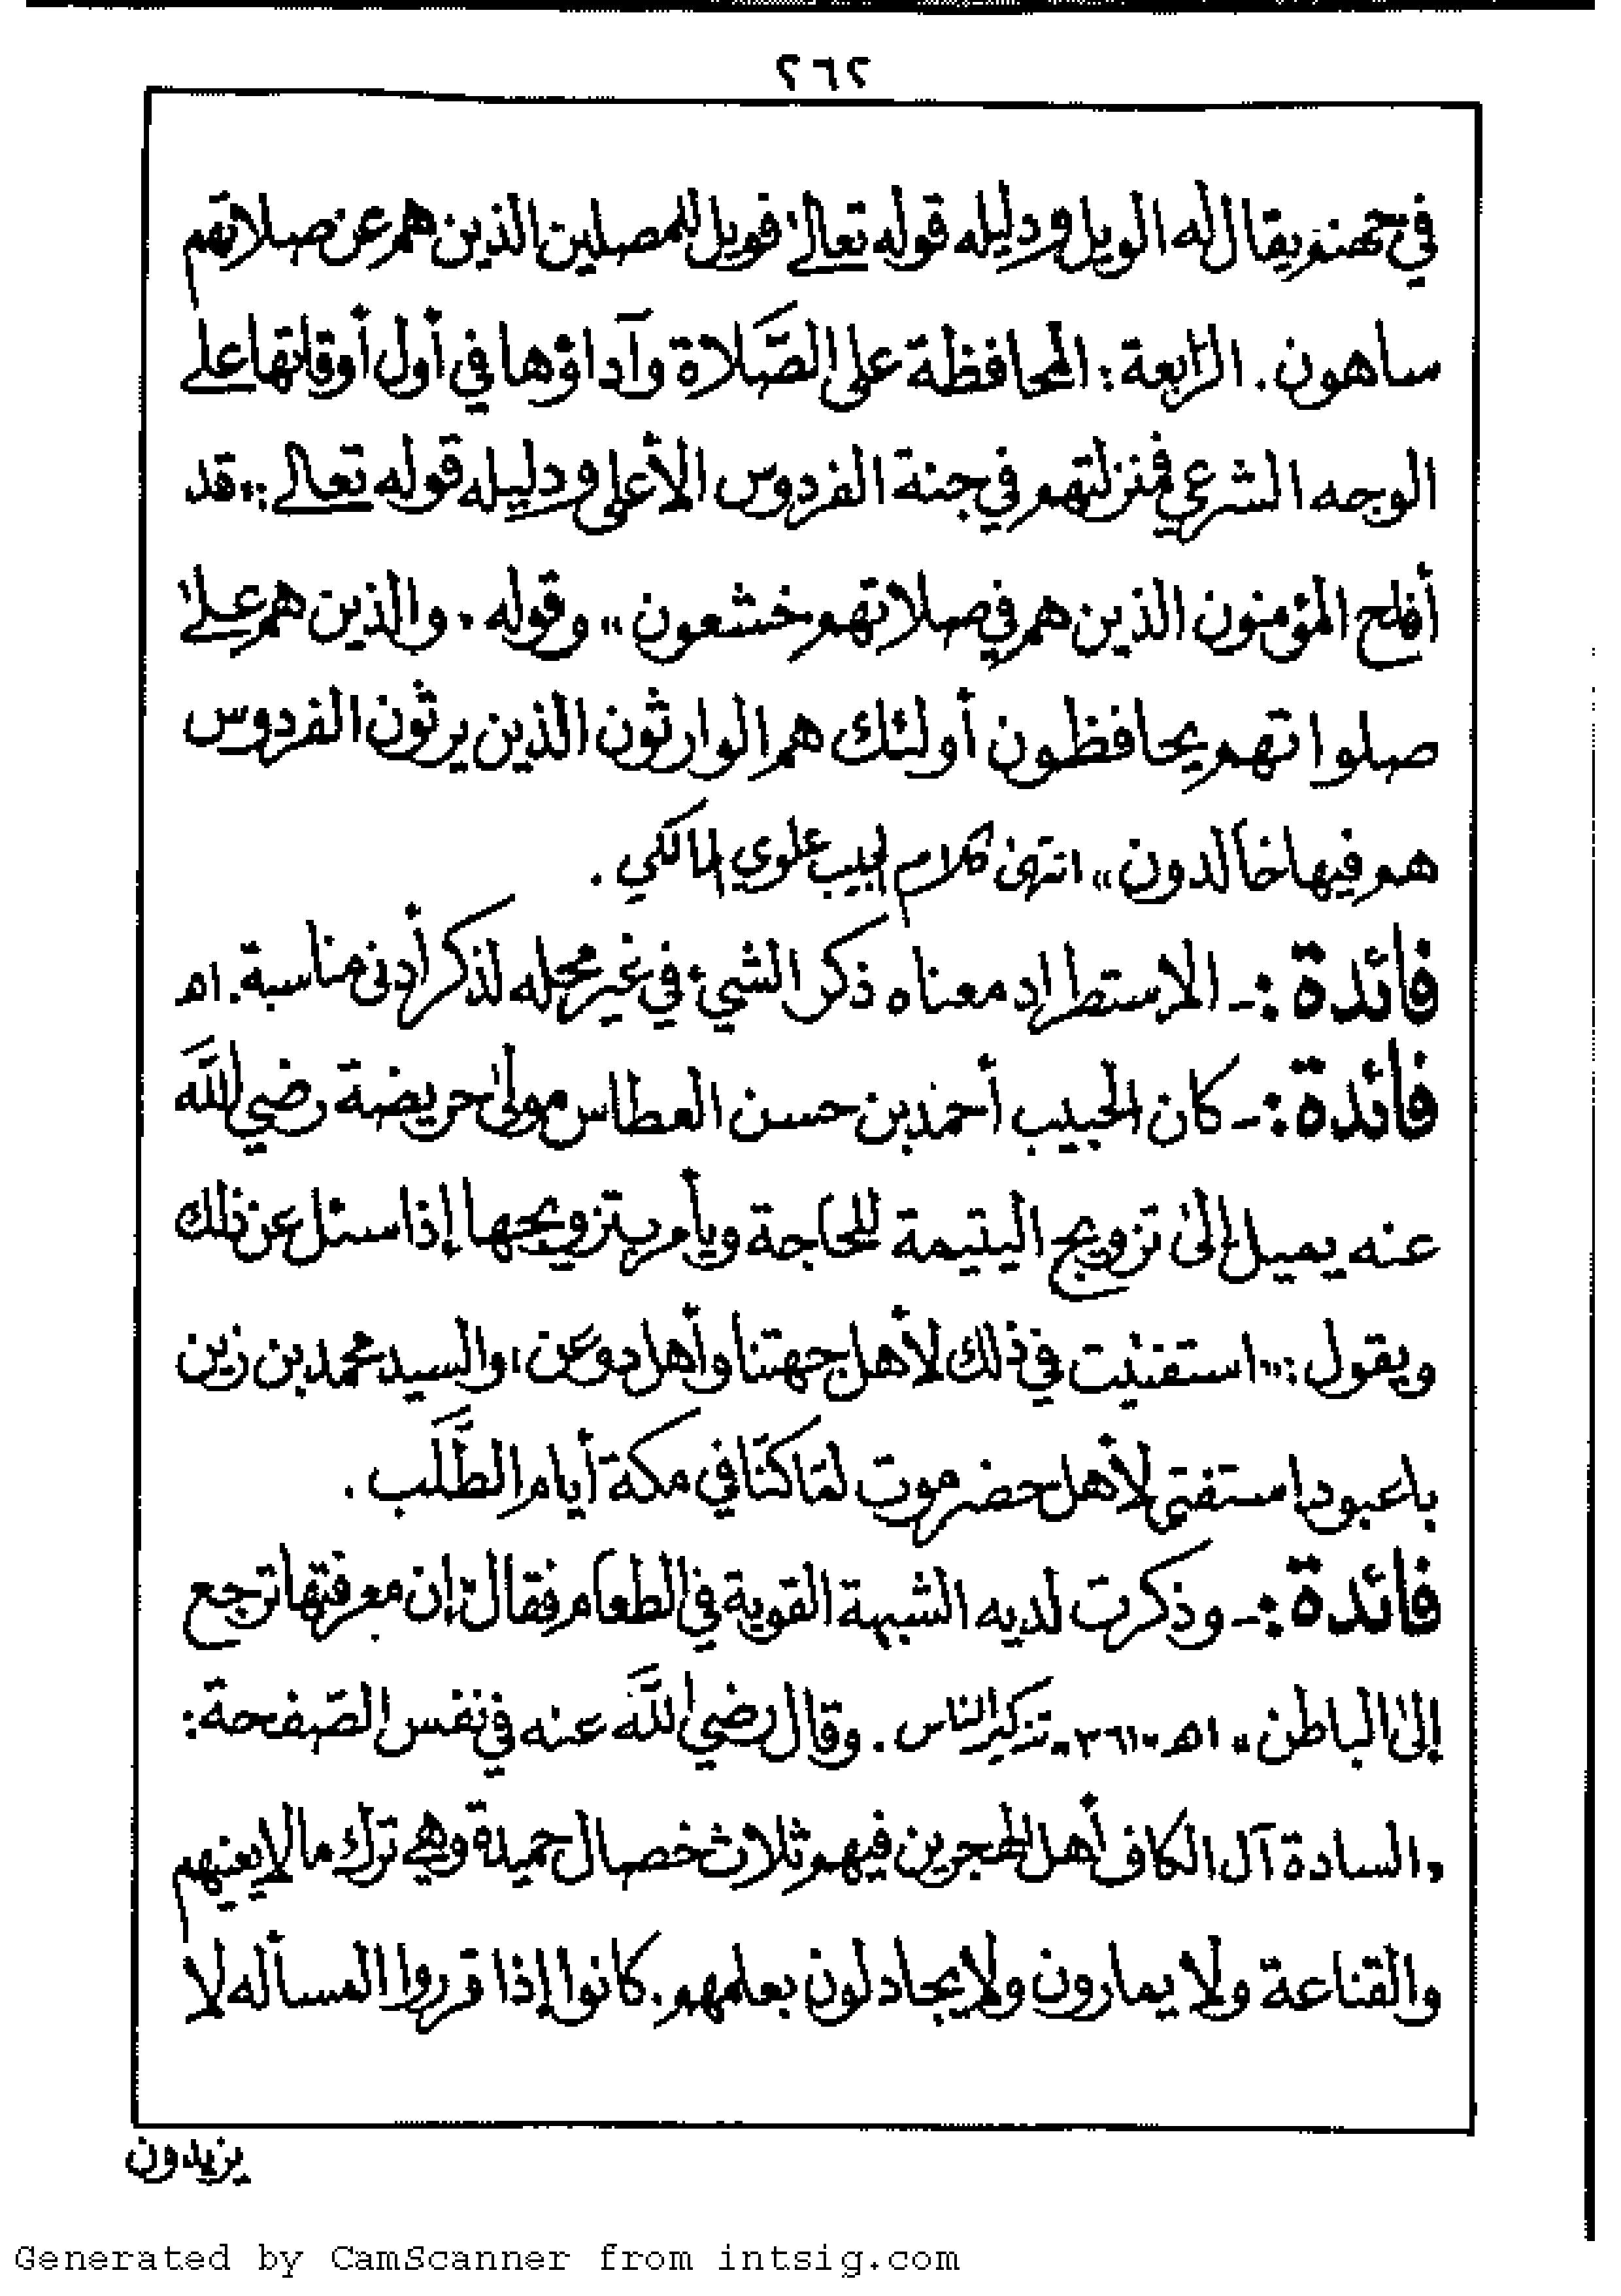 ٢٦٢
في جهنم يقال له الويل ودليله قوله تعالى فويل للمصلين الذين هم عن صلاتهم
ساهون . الرابعة : المحافظة على الصَّلاة وآداؤها في أول أوقاتها على
الوجه الشرعي فمنزلتهم في جنة الفردوس الأعلى ودليله قوله تعالى : « قد
أفلح المؤمنون الذين هم في صلاتهم خشعون » وقوله « والذين هم على
صلواتهم يحافظون أولئك هم الوارثون الذين يرثون الفردوس
هم فيها خالدون » انتهى كلام الحبيب علوي المالكي .
فائدة :- الاستطراد معناه ذكر الشيء في غير محله لذكر أدنى مناسبة . اه
فائدة :- كان الحبيب أحمد بن حسن العطاس مولى حريضة رضي اللَّه
عنه يميل إلى تزويج اليتيمة للحاجة ويأمر بتزويجها إذا سئل عن ذلك
ويقول : « استفتيت في ذلك لأهل جهتنا وأهل دوعن ، والسيد محمد بن زين
باعبود استفتى لأهل حضرموت لمّا كنّا في مكة أيام الطَّلَب .
فائدة :- وذكرت لديه الشبهة القوية في الطعام فقال : إن معرفتها ترجع
إلى الباطن » اه - ٣٦١ - تذكير الناس . وقال رضي اللَّه عنه في نفس الصّفحة :
« السادة آل الكاف أهل الهجرين فيهم ثلاث خصال حميدة وهي ترك مالا يعنيهم
والقناعة ولا يمارون ولا يجادلون بعلمهم . كانوا إذا قرروا المسأله لا
يزيدون
Generated by CamScanner from intsig.com